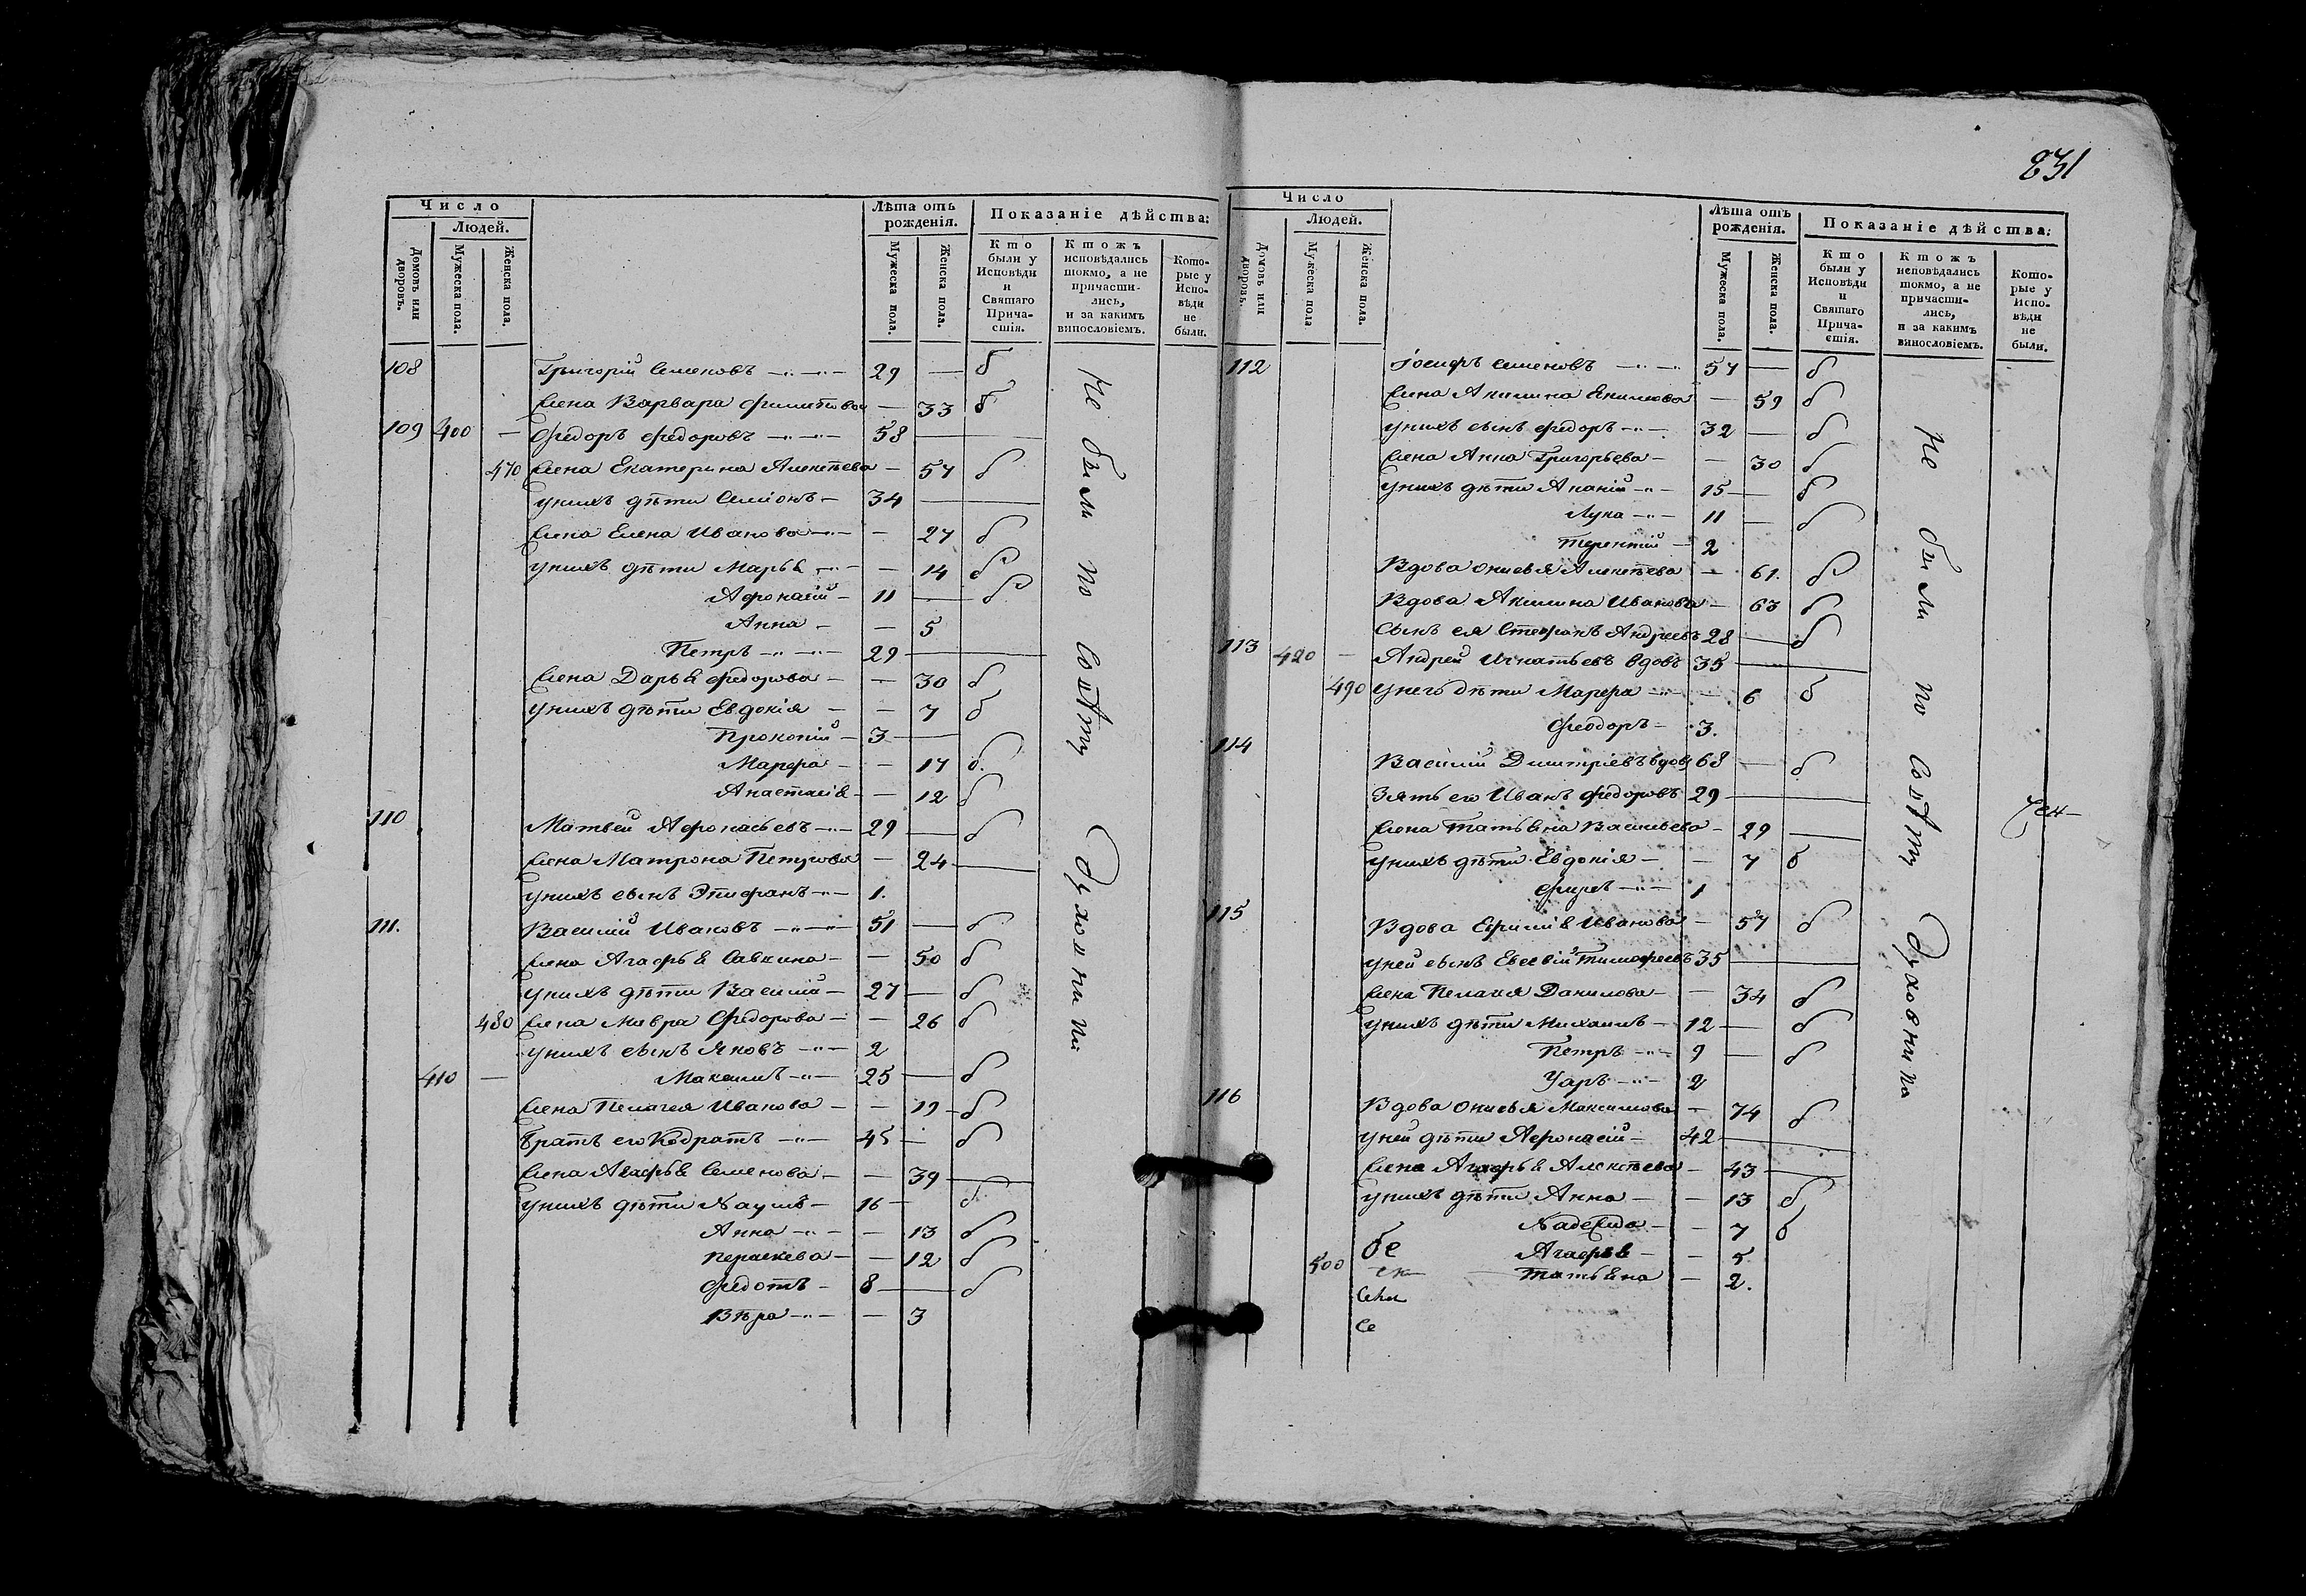 231
Число
Людей.
Домовъ или дворовъ.
Мужеска пола.
Женска пола.
Лѣта отъ рожденія.
Мужеска пола.
Женска пола.
Показаніе дѣйства:
Кто были у Исповѣди и Святаго Причастія.
Ктожъ исповѣдались токмо, а не причастились, и за какимъ винословіемъ.
Которые у Исповѣди не были.
108 Григорій Семеновъ 29 — б
Жена Варвара Филипова — 33 б
109 400 — Федоръ Федоровъ 58 —
470 Жена Екатерина Алексѣева — 57 б
у нихъ дѣти Семіонъ 34 —
Жена Елена Иванова — 27 б
у нихъ дѣти Марья — 14 б
Афонасій 11 — б
Анна — 5
Петръ 29 —
Жена Дарья Федорова — 30 б
у нихъ дѣти Евдокія — 7 б
Прокопій 3 —
Марфа — 17 б.
Анастасія — 12 б
110 Матвей Афонасьевъ 29 — б
Жена Матрона Петрова — 24 —
у нихъ сынъ Эпифанъ 1.
111. Василій Ивановъ 51 — б
Жена Агафья Савкина — 50 б
у нихъ дѣти Василій 27 — б
480 Жена Мавра Федорова — 26 б
у нихъ сынъ Яковъ 2
410 — Максимъ 25 — б
Жена Пелагея Иванова — 19 б
братъ его Кодратъ 45 — б
Жена Агафья Семенова — 39 —
у нихъ дѣти Наумъ 16 — б
Анна — 13 б
Параскева — 12 б
Федотъ 8 — б
Вѣра — 3
Не были по совѣту Духовника
Число
Людей.
Домовъ или дворовъ.
Мужеска пола
Женска пола.
Лѣта отъ рожденія.
Мужеска пола.
Женска пола.
Показаніе дѣйства:
Кто были у Исповѣди и Святаго Причастія.
Ктожъ исповѣдались токмо, а не причастились, и за какимъ винословіемъ.
Которые у Исповѣди не были.
112 Іосифъ Семеновъ 57 — б
Жена Акилина Екимова — 59 б
у нихъ сынъ Федоръ 32 — б
Жена Анна Григорьева — 30 б
у нихъ дѣти Ананій 15 — б
Лука 11 — б
Терентій 2
Вдова Онисья Алексѣева — 61. б
Вдова Акилина Иванова — 63 б
сынъ ея Стефанъ Андреевъ 28 — б
113 420 — Андрей Игнатьевъ вдовъ 35 —
490 у него дѣти Марфа — 6 б
Феодоръ 3.
114 Василій Димитріевъ вдовъ 68 — б
Зять его Иванъ Федоровъ 29 —
Жена Татьяна Васильева — 29 —
у нихъ дѣти Евдокія — 7 б
Фирсъ 1
115 Вдова Ефимія Иванова — 57 б
у ней сынъ Евсевій Тимофеевъ 35 —
Жена Пелагия Данилова — 34 б
у нихъ дѣти Михаилъ 12 — б
Петръ 9 — б
Уаръ 2
116 Вдова Онисья Максимова — 74 б
у ней дѣти Афонасій 42 —
Жена Агафья Алексѣева — 43 —
у нихъ дѣти Анна — 13 б
Надежда — 7 б
Агафья — 5
500 Татьяна — 2.
бе
Се
Не были по совѣту Духовника